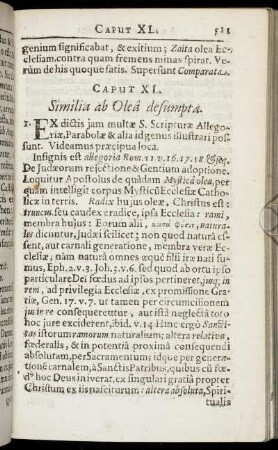 CAPUT XL. 521
genium significabat, & exitium; Zaita olea Ec-
clesiam, contra quam fremens minas spirat. Ve-
rùm de his quoque satis. Supersunt Comparata.
CAPUT XL.
Similia ab Oleâ desumpta.
1. EX dictis jam multæ S. Scripturæ Allego-
riæ, Parabolæ & alia id genus illustrari pos-
sunt. Videamus præcipua loca.
Insignis est allegoria Rom. 11 v. 16. 17. 18
De Judæorum rejectione & Gentium adoptione.
Loquitur Apostolus de quâdam Mysticâ olea, per
quam intelligit corpus Mysticũ Ecclesiæ Catho-
licæ in terris. Radix hujus oleæ, Christus est:
truncus seu caudex eradice, ipsa Ecclesia: rami,
membra hujus: Eorum alii, natura-
les dicuntur, judæi scilicet; non quod naturâ es-
sent, aut carnali generatione, membra veræ Ec-
clesiæ; nàm naturâ omnes æquè filii iræ nati su-
mus, Eph. 2. v. 3. Joh. 3. v. 6. sed quod ab ortu ipso
particulare Dei fœdus ad ipsos pertineret, jusq; in
rem, ad privilegia Ecclesiæ, ex promissione Gra-
tiæ, Gen. 17. v. 7. ut tamen per circumcisionem
jus in re consequerentur, aut istâ neglectâ to-
hoc jure exciderent, ibid. v. 14 Hinc ergò Sancti-
tas istorum ramorum naturalium; altera relativa,
fœderalis, & in potentiâ proximâ consequendi
absolutam, per Sacramentum: idque per generati-
onẽ carnalem, à Sanctis Patribus, quibus cũ fœ-
dꝰ hoc Deus iniverat, ex singulari gratiâ propter
Christum ex iis nasciturum: altera absoluta, Spiri-
tualia